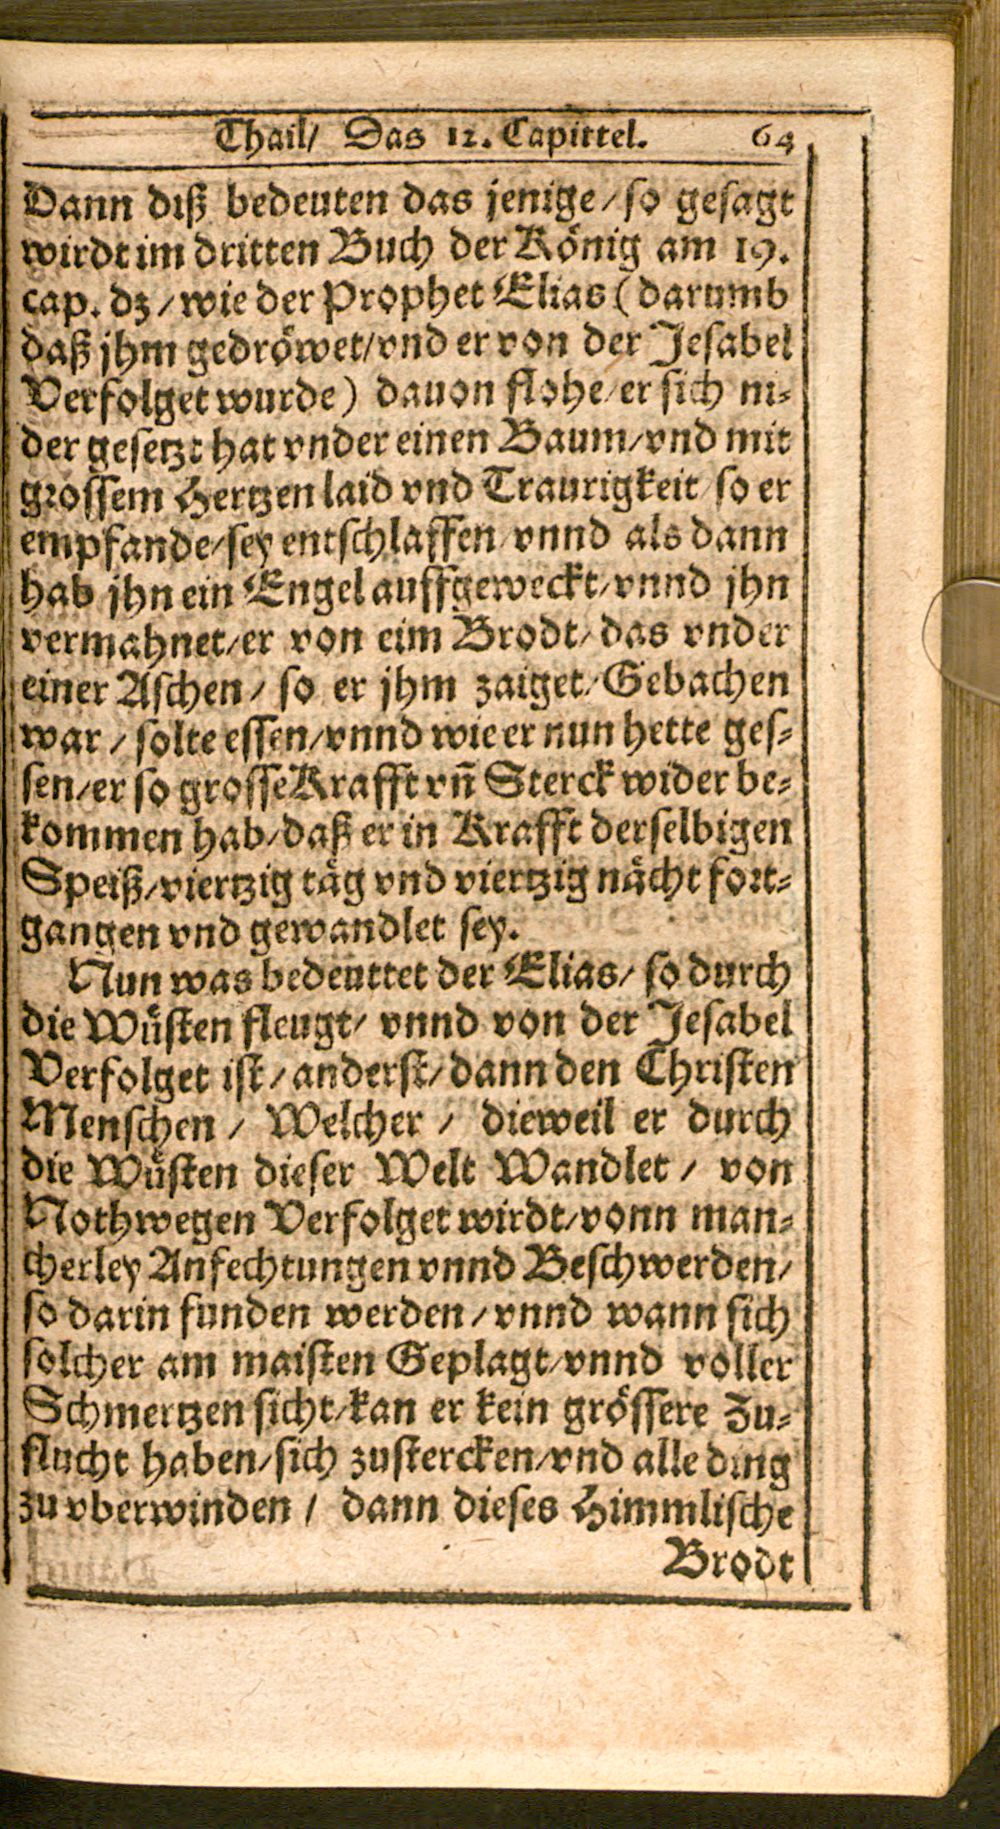 Thail/ Das 12. Capittel. 64
Dann diß bedeuten das jenige/so gesagt
wirdt im dritten Buch der König am 19.
cap. dz/wie der Prophet Elias (darumb
daß jhm gedröwet/vnd er von der Jesabel
Verfolget wurde) dauon flohe/er sich ni-
der gesetzt hat vnder einen Baum/vnd mit
grossem Hertzen laid vnd Traurigkeit/so er
empfande/sey entschlaffen/vnnd als dann
hab jhn ein Engel auffgeweckt/vnnd jhn
vermahnet/er von eim Brodt/das vnder
einer Aschen/ so er jhm zaiget/Gebachen
war/ solte essen/vnnd wie er nun hette ges-
sen/er so grosse Krafft vñ Sterck wider be-
kommen hab/daß er in Krafft derselbigen
Speiß/viertzig täg vnd viertzig nächt fort-
gangen vnd gewandlet sey.
Nun was bedeuttet der Elias/ so durch
die Wüsten fleugt/ vnnd von der Jesabel
Verfolget ist/anderst/dann den Christen
Menschen/ Welcher/ dieweil er durch
die Wüsten dieser Welt Wandlet/ von
Nothwegen Verfolget wirdt/vonn man-
cherley Anfechtungen vnnd Beschwerden/
so darin funden werden/vnnd wann sich
solcher am maisten Geplagt/vnnd voller
Schmertzen sicht/kan er kein grössere Zu-
flucht haben/sich zustercken/vnd alle ding
zu vberwinden/ dann dieses Himmlische
Brodt